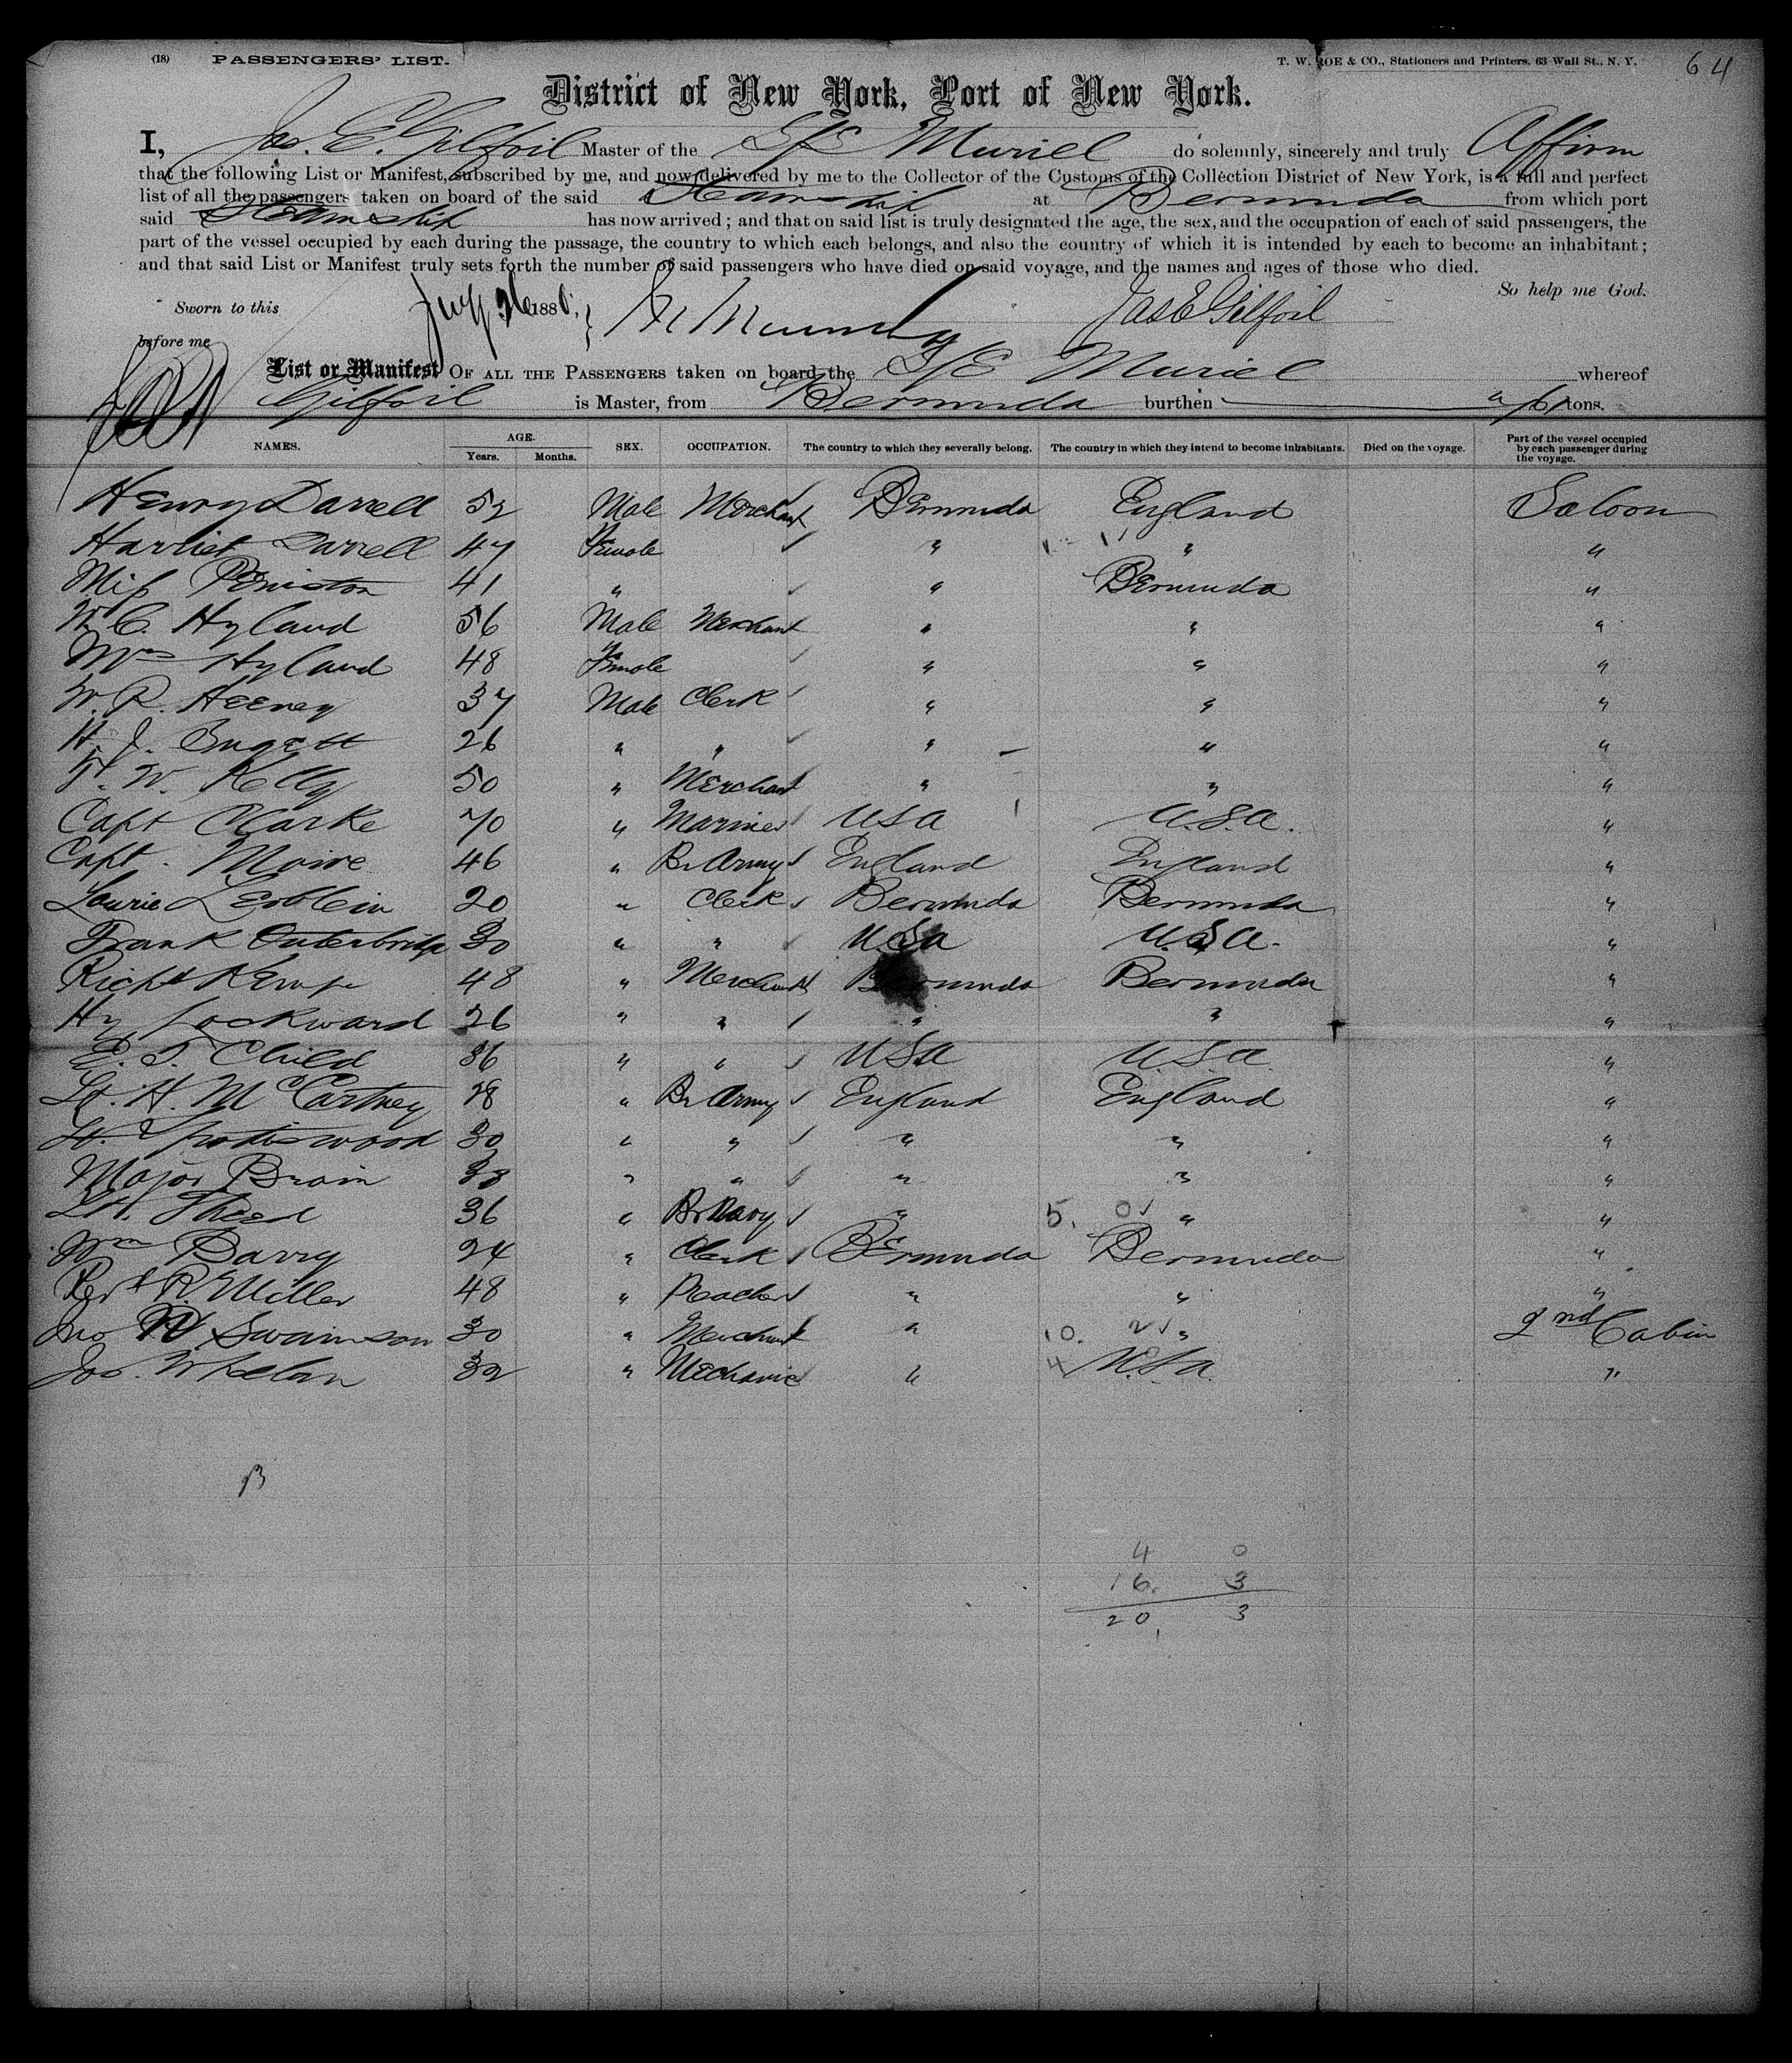 (18) PASSENGERS' LIST. T. W. ROE & CO., Stationers and Printers, 63 Wall St., N. Y. 64
District of New York, Port of New York.
I, Jas. E. Gilfoil Master of the S/S Muriel do solemnly, sincerely and truly Affirm
that the following List or Manifest, subscribed by me, and now delivered by me to the Collector of the Customs of the Collection District of New York, is a full and perfect
list of all the passengers taken on board of the said Steamship at Bermuda from which port
said Steamship has now arrived; and that on said list is truly designated the age, the sex, and the occupation of each of said passengers, the
part of the vessel occupied by each during the passage, the country to which each belongs, and also the country of which it is intended by each to become an inhabitant;
and that said List or Manifest truly sets forth the number of said passengers who have died on said voyage, and the names and ages of those who died.
So help me God.
Sworn to this 26 1886, Jas E Gilfoil
before me
List or Manifest OF ALL THE PASSENGERS taken on board the S/S Muriel whereof
Gilfoil is Master, from Bermuda burthen tons.
NAMES. AGE. Years. Months. SEX. OCCUPATION. The country to which they severally belong. The country in which they intend to become inhabitants. Died on the voyage. Part of the vessel occupied by each passenger during the voyage.
Henry Darrell 52 Male Merchant Bermuda England Saloon
Harriet Darrell 47 Female " " "
Miss Peniston 41 " " Bermuda "
W. C. Hyland 56 Male Merchant " " "
Mrs Hyland 48 Female " " "
W. R. Heeney 37 Male Clerk " " "
H. J. 26 " " " " "
W. Kelly 50 " Merchant " " "
Capt Clarke 70 " Mariner USA U.S.A. "
Capt. 46 " Br Army England England "
Laurie 20 " Clerk Bermuda Bermuda "
Frank Outerbridge 30 " " U.S.A U.S.A. "
Richd Kempe 48 " Merchant Bermuda Bermuda "
Hy Lockward 26 " " " " "
E. T. Child 36 " " USA U.S.A. "
Lt. H. McCartney 28 " Br Army England England "
Lt. 30 " " " " "
Major Brain 38 " " " " "
Lt. 36 " Br Navy " 5. 0 " "
Wm Barry 24 " Clerk Bermuda Bermuda "
Revd R. Miller 48 " Preacher " " "
Jno W Swainson 30 " Merchant " 10. 2 " 2nd Cabin
Jas. Whelan 32 " Mechanic " 4 U.S.A. "
4 0
16. 3
20 3